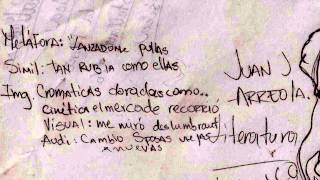 Metáfora: Lanzadome pullas
Simil: tan rubia como ellas
Img Cromaticas doradas como..
cinética el mercader recorrió
Visual: me miró deslumbrant
Audi: Cambio sposas viejas
nuevas
JUAN J
ARREOLA.
literatura